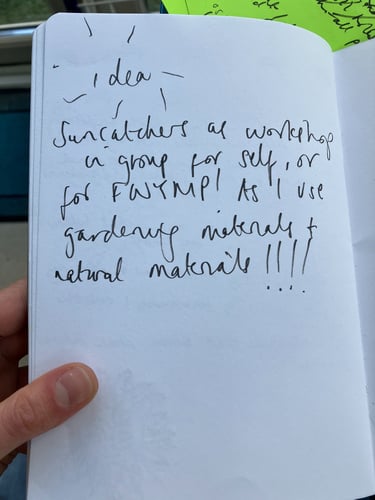 idea
Suncatchers as workshop
in group for self, or
for FWYMP! As I use
gardening materials +
natural materials !!!!